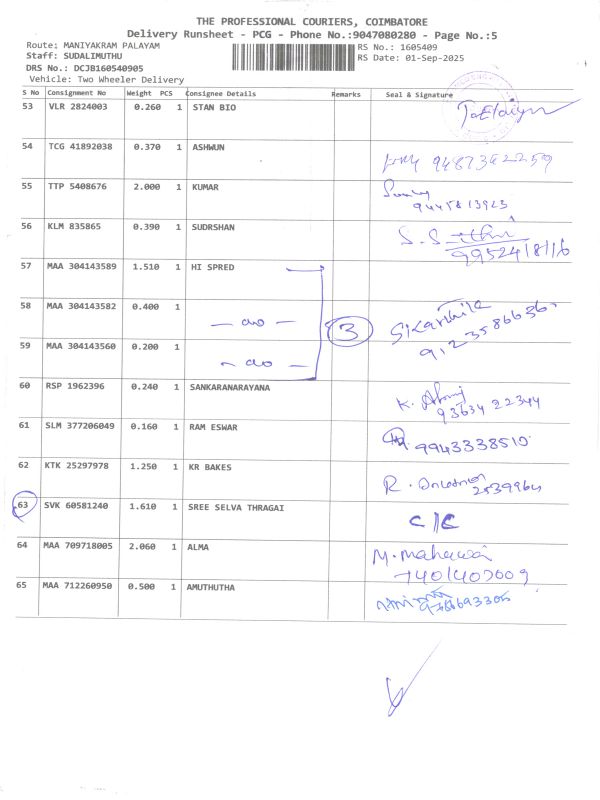 THE PROFESSIONAL COURIERS, COIMBATORE
Delivery Runsheet - PCG - Phone No.:9047080280 - Page No.:5
Route: MANIYAKRAM PALAYAM RS No.: 1605409
Staff: SUDALIMUTHU RS Date: 01-Sep-2025
DRS No.: DCJB160540905
Vehicle: Two Wheeler Delivery
S No Consignment No Weight PCS Consignee Details Remarks Seal & Signature
53 VLR 2824003 0.260 1 STAN BIO
54 TCG 41892038 0.370 1 ASHWUN
55 TTP 5408676 2.000 1 KUMAR
9445813923
56 KLM 835865 0.390 1 SUDRSHAN
9952418116
57 MAA 304143589 1.510 1 HI SPRED
58 MAA 304143582 0.400 1
— do — 3
9123586636
59 MAA 304143560 0.200 1
~ do —
60 RSP 1962396 0.240 1 SANKARANARAYANA
K.
93634 22344
61 SLM 377206049 0.160 1 RAM ESWAR
9943338510
62 KTK 25297978 1.250 1 KR BAKES
R.
63 SVK 60581240 1.610 1 SREE SELVA THRAGAI
C/C
64 MAA 709718005 2.060 1 ALMA
M.
7401407009
65 MAA 712260950 0.500 1 AMUTHUTHA